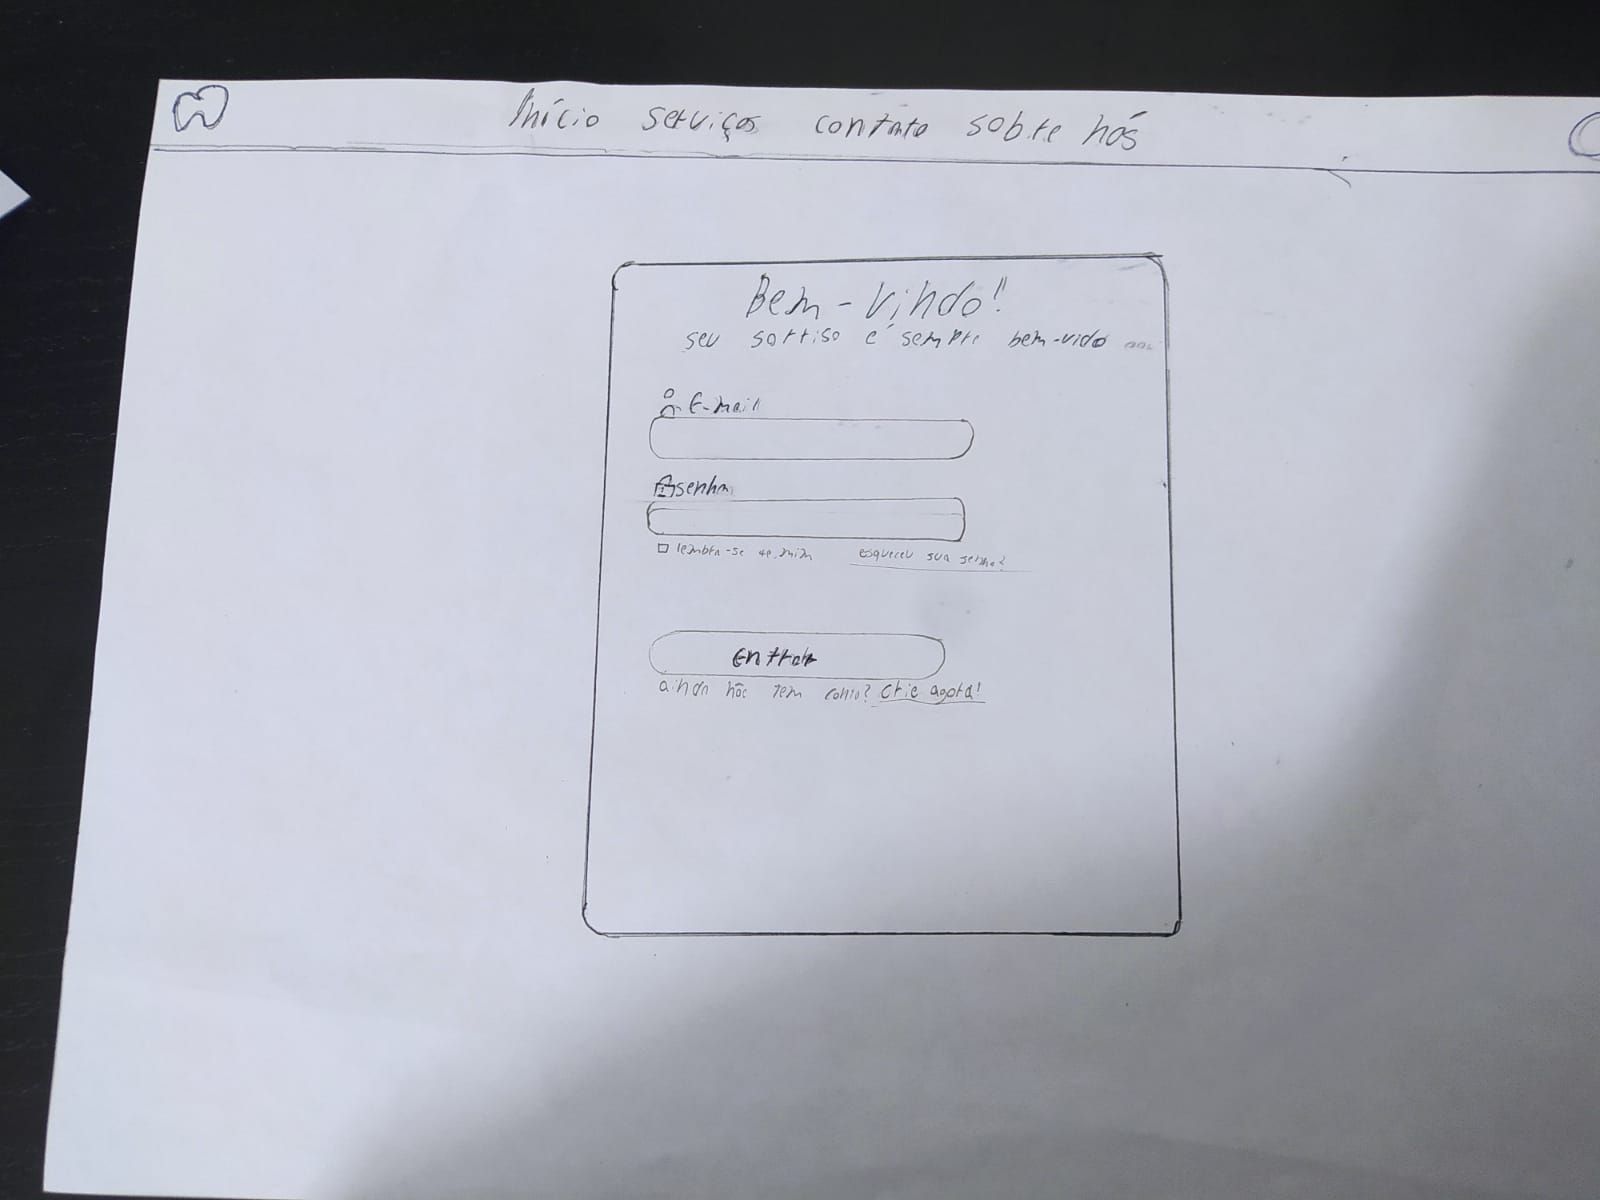 Início serviços contato sobre nós
Bem-Vindo!
seu sorriso é sempre bem-vido
E-mail
senha
lembra-se de mim esqueceu sua senha?
Entrar
ainda não tem conta? crie agora!